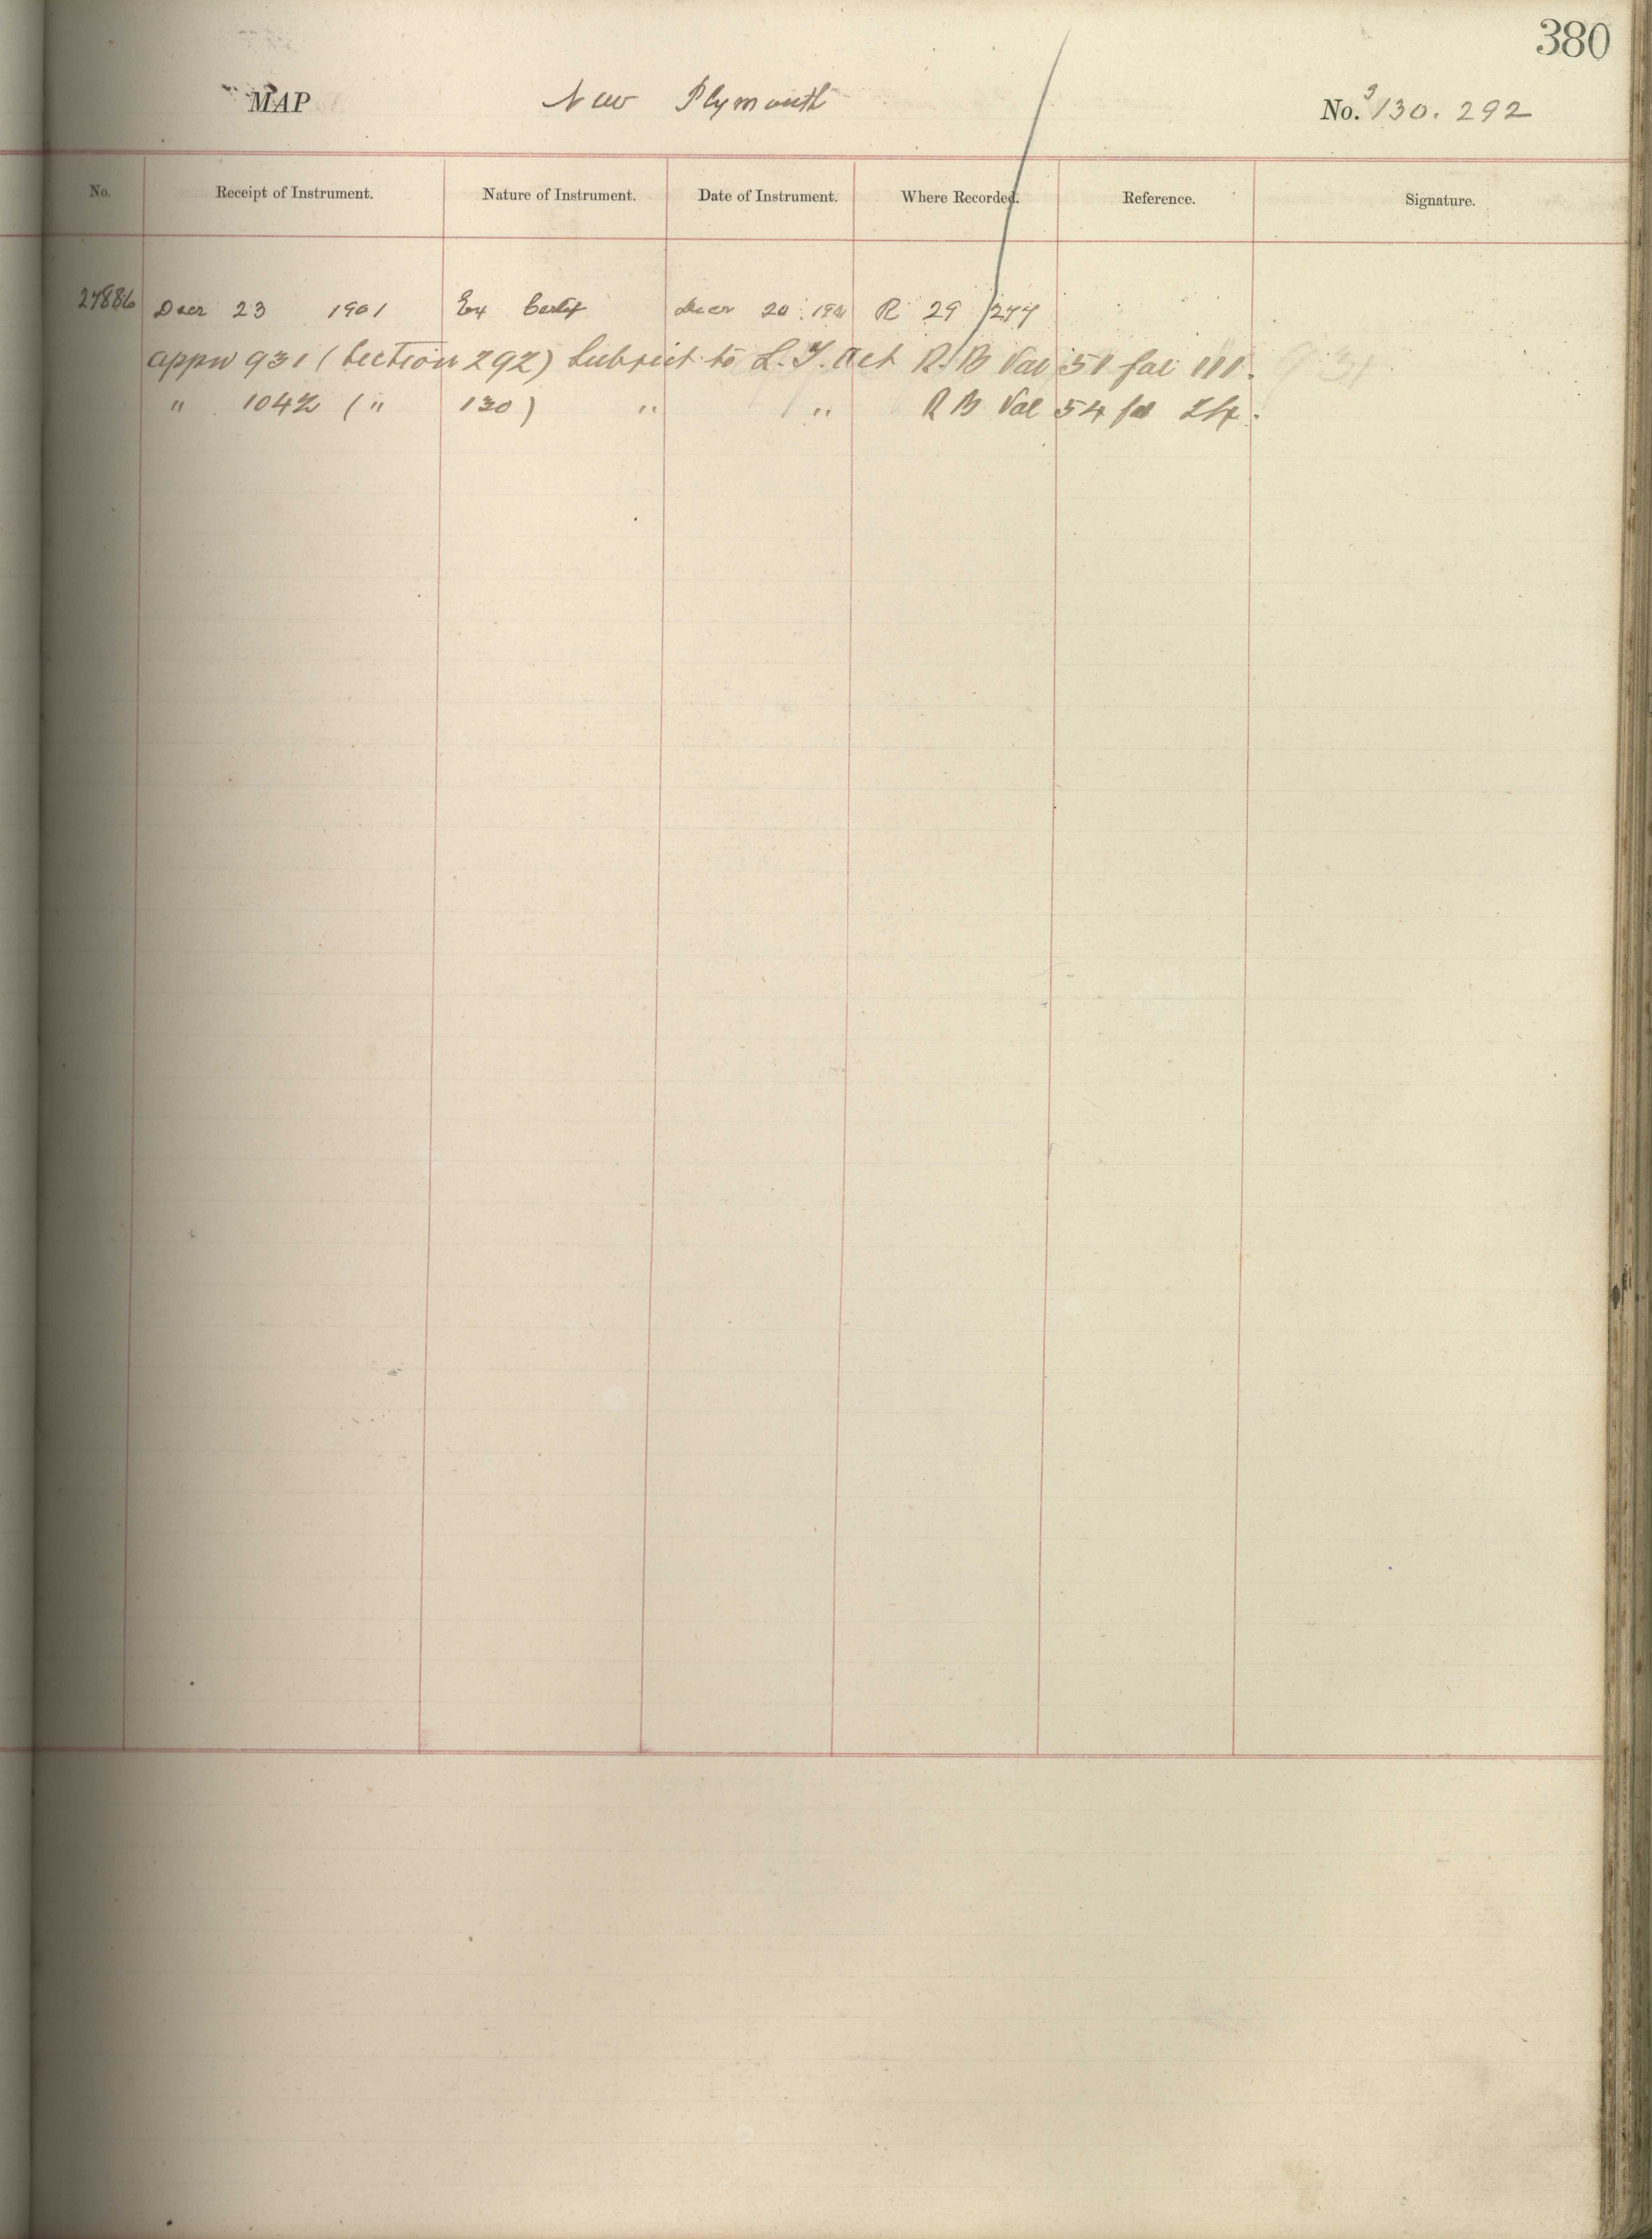 380
MAP New Plymouth No.s 130. 292
No. Receipt of Instrument. Nature of Instrument. Date of Instrument. Where Recorded. Reference. Signature.
27886 Decr 23 1901 Ex Certif Decr 20. 1901 R 29 /277
appn 931 (Section 292) Subject to L.T. Act R.B Vol 51 fol 111.
" 1042 (" 130) " " R B Vol 54 fol